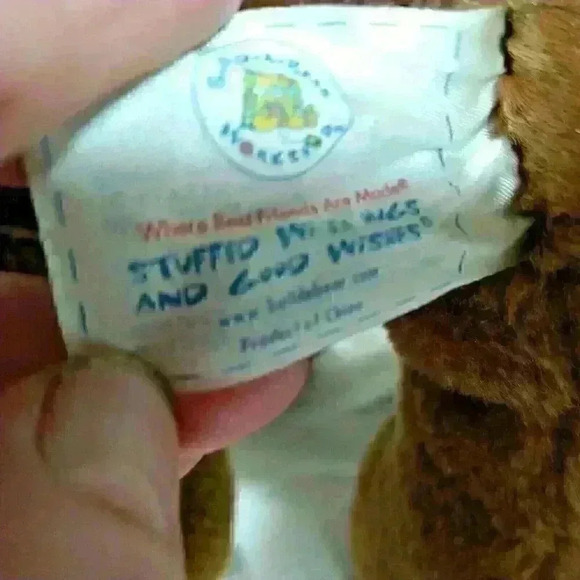 Workshop
Where Best Friends Are Made®
STUFFED WITH HUGS
AND GOOD WISHES®
www.buildabear.com
Product of China